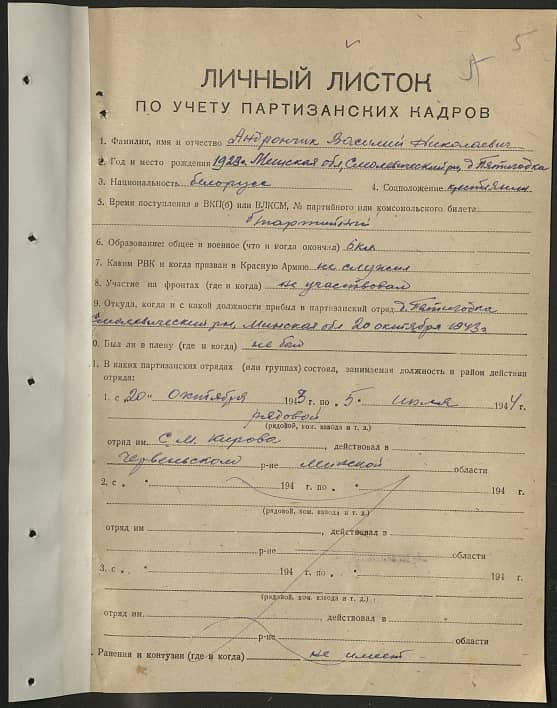 5
ЛИЧНЫЙ ЛИСТОК
ПО УЧЕТУ ПАРТИЗАНСКИХ КАДРОВ
1. Фамилия, имя и отчество Андрончик Василий Николаевич
2. Год и место рождения 1928г. Минская обл, Смолевичский рн, д Пятигодка
3. Национальность белорусс 4. Соцположение крестьянин
5. Время поступления в ВКП(б) или ВЛКСМ, № партийного или комсомольского билета
б/партийный
6. Образование: общее и военное (что и когда окончил) 6 кл
7. Каким РВК и когда призван в Красную Армию не служил
8. Участие на фронтах (где и когда) не участвовал
9. Откуда, когда и с какой должности прибыл в партизанский отряд д. Пятигодка
Смолевический рн, Минская обл 20 октября 1943г
0. Был ли в плену (где и когда) не был
1. В каких партизанских отрядах (или группах) состоял, занимаемая должность и район действия
отряда:
1. с „20„ октября 1943 г. по „5„ июля 1944 г.
рядовой
(рядовой, ком. взвода и т. д.)
отряд им. С.М. Кирова, действовал в
Червеньском р-не Минской области
2. с „ „ 194 г. по „ „ 194 г.
(рядовой, ком. взвода и т. д.)
отряд им , действовал в
р-не области
3. с „ „ 194 г. по „ „ 194 г.
(рядовой, ком. взвода и т. д.)
отряд им. , действовал в
р-не области
. Ранения и контузии (где и когда) не имеет